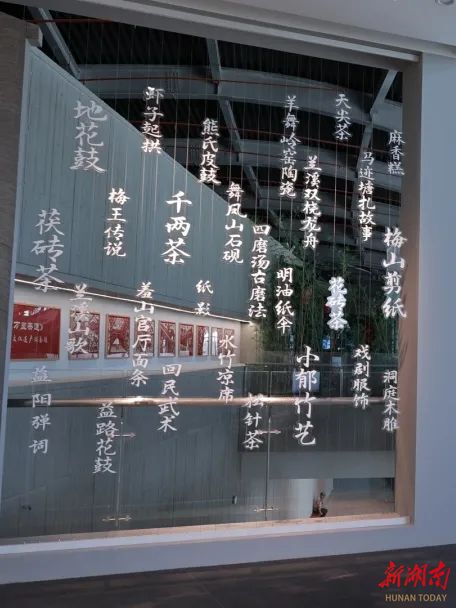 地花鼓
狮子起拱
熊氏皮鼓
羊舞岭窑陶瓷
天尖茶
麻香糕
茯砖茶
梅王传说
千两茶
舞凤山石砚
四磨汤古磨法
兰溪双桡龙舟
马迹塘扎故事
梅山剪纸
兰溪山歌
羞山官厅面条
纸影
明油纸伞
花砖茶
益阳弹词
益路花鼓
回民武术
水竹凉席
松针茶
小郁竹艺
戏剧服饰
洞庭木雕
新湖南
HUNAN TODAY